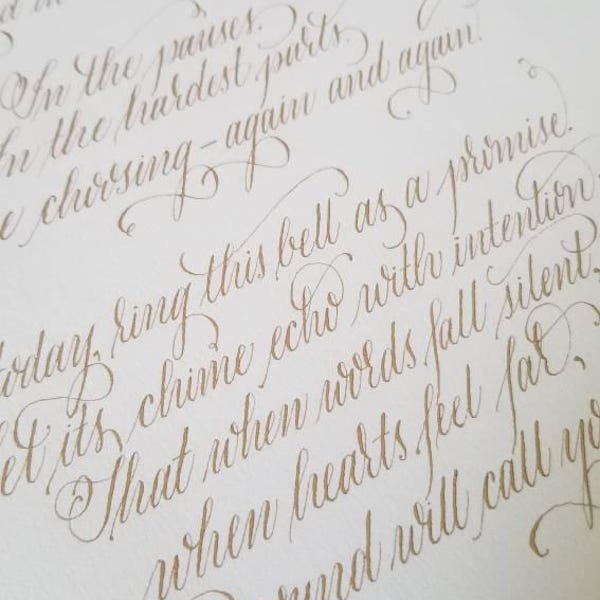 In the pauses.
In the hardest parts.
choosing – again and again.
today, ring this bell as a promise.
Let its chime echo with intention.
That when words fall silent,
when hearts feel far,
will call